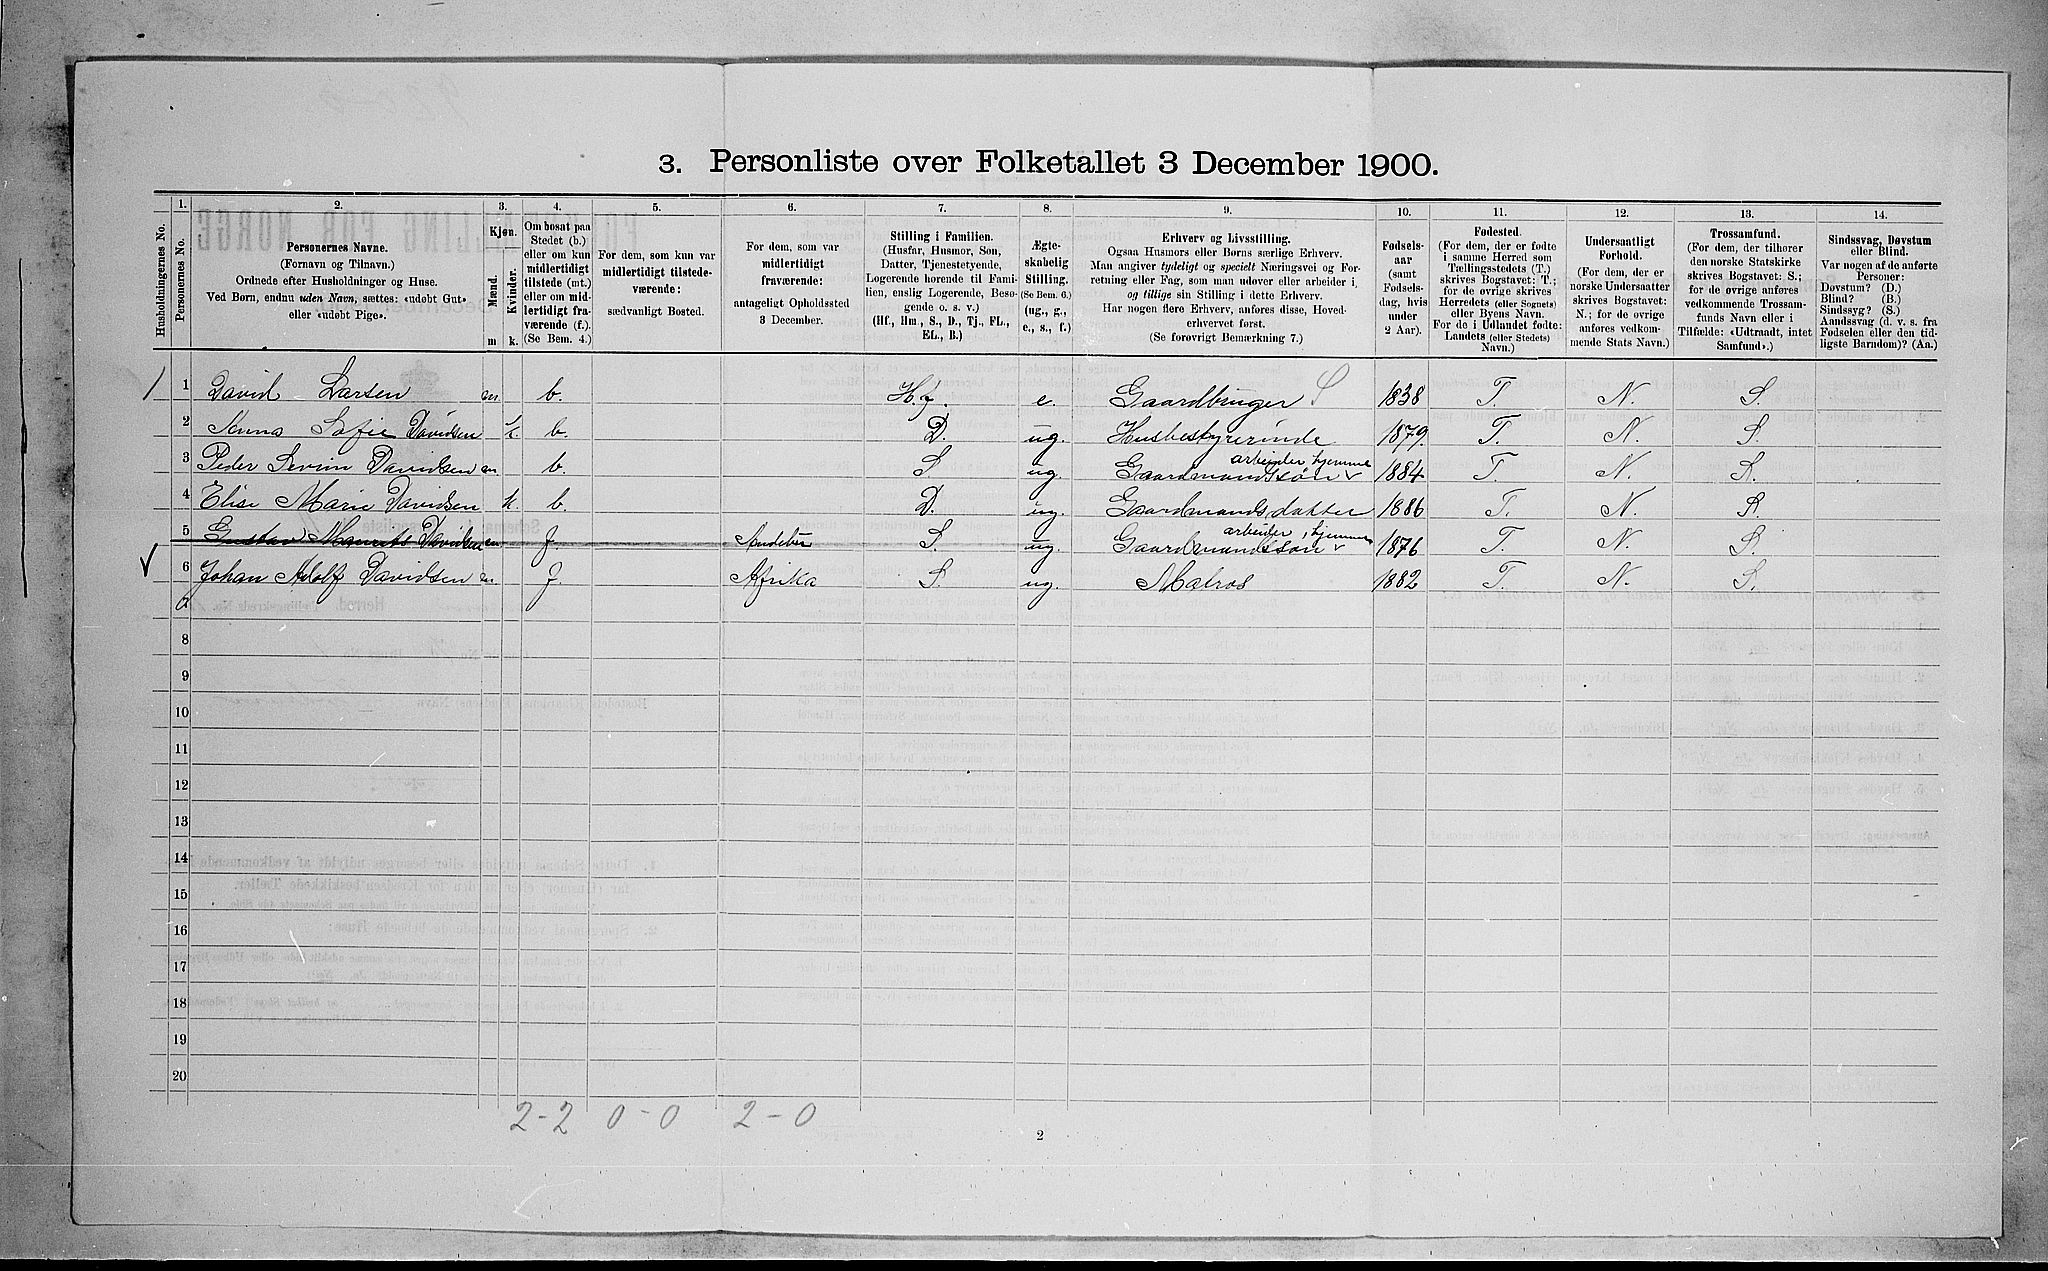 3. Personliste over Folketallet 3 December 1900.
1. 2. 3. 4. 5. 6. 7. 8. 9. 10. 11. 12. 13. 14.
Husholdningernes No.
Personernes No.
Personernes Navne.
(Fornavn og Tilnavn.)
Ordnede efter Husholdninger og Huse.
Ved Børn, endnu uden Navn, sættes: «udøbt Gut» eller «udøbt Pige».
Kjøn.
Mænd.
Kvinder.
m k.
Om bosat paa
Stedet (b.)
eller om kun
midlertidigt
tilstede (mt.)
eller om mid-
lertidigt fra-
værende (f.)
(Se Bem. 4.)
For dem, som kun var
midlertidigt tilstede-
værende:
sædvanligt Bosted.
For dem, som var
midlertidigt
fraværende:
antageligt Opholdssted
3 December.
Stilling i Familien.
(Husfar, Husmor, Søn,
Datter, Tjenestetyende,
Logerende hørende til Fami-
lien, enslig Logerende, Besø-
gende o. s. v.)
(Hf., Hm., S., D., Tj., FL.,
EL., B.)
Ægte-
skabelig
Stilling.
(Se Bem. 6.)
(ug., g.,
e., s., f.)
Erhverv og Livsstilling.
Ogsaa Husmors eller Børns særlige Erhverv.
Man angiver tydeligt og specielt Næringsvei og For-
retning eller Fag, som man udøver eller arbeider i,
og tillige sin Stilling i dette Erhverv.
Har nogen flere Erhverv, anføres disse, Hoved-
erhvervet først.
(Se forøvrigt Bemærkning 7.)
Fødsels-
aar
(samt
Fødsels-
dag, hvis
under
2 Aar).
Fødested.
(For dem, der er fødte
i samme Herred som
Tællingsstedets (T.)
skrives Bogstavet: T.;
for de øvrige skrives
Herredets (eller Sognets)
eller Byens Navn.
For de i Udlandet fødte:
Landets (eller Stedets)
Navn.)
Undersaatligt
Forhold.
(For dem, der er
norske Undersaatter
skrives Bogstavet:
N.; for de øvrige
anføres vedkom-
mende Stats Navn.)
Trossamfund.
(For dem, der tilhører
den norske Statskirke
skrives Bogstavet: S.;
for de øvrige anføres
vedkommende Trossam-
funds Navn eller i
Tilfælde: «Udtraadt, intet
Samfund».)
Sindssvag, Døvstum
eller Blind.
Var nogen af de anførte
Personer:
Døvstum? (D.)
Blind? (B.)
Sindssyg? (S.)
Aandssvag (d. v. s. fra
Fødselen eller den tid-
ligste Barndom)? (Aa.)
1 1 David Larsen m b. H.f. e. Gaardbruger S 1838 T. N. S.
2 Anna Sofie Davidsen k. b. D. ug. Husbestyrerinde 1879. T. N. S.
3 Peder Severin Davidsen m b. S ug. Gaardmandssøn arbeider hjemme 1884 T. N. S.
4 Elise Marie Davidsen k. b. D. ug. Gaardmandsdatter 1886 T. N. S.
5 Gustav Mauritz Davidsen m f. Andebu S. ug. Gaardmandssøn arbeider hjemme 1876 T. N. S.
6 Johan Adolf Davidsen m f. Afrika S. ug. Matros 1882 T. N. S.
7
8
9
10
11
12
13
14
15
16
17
18
19
20
2-2 0-0 2-0
2